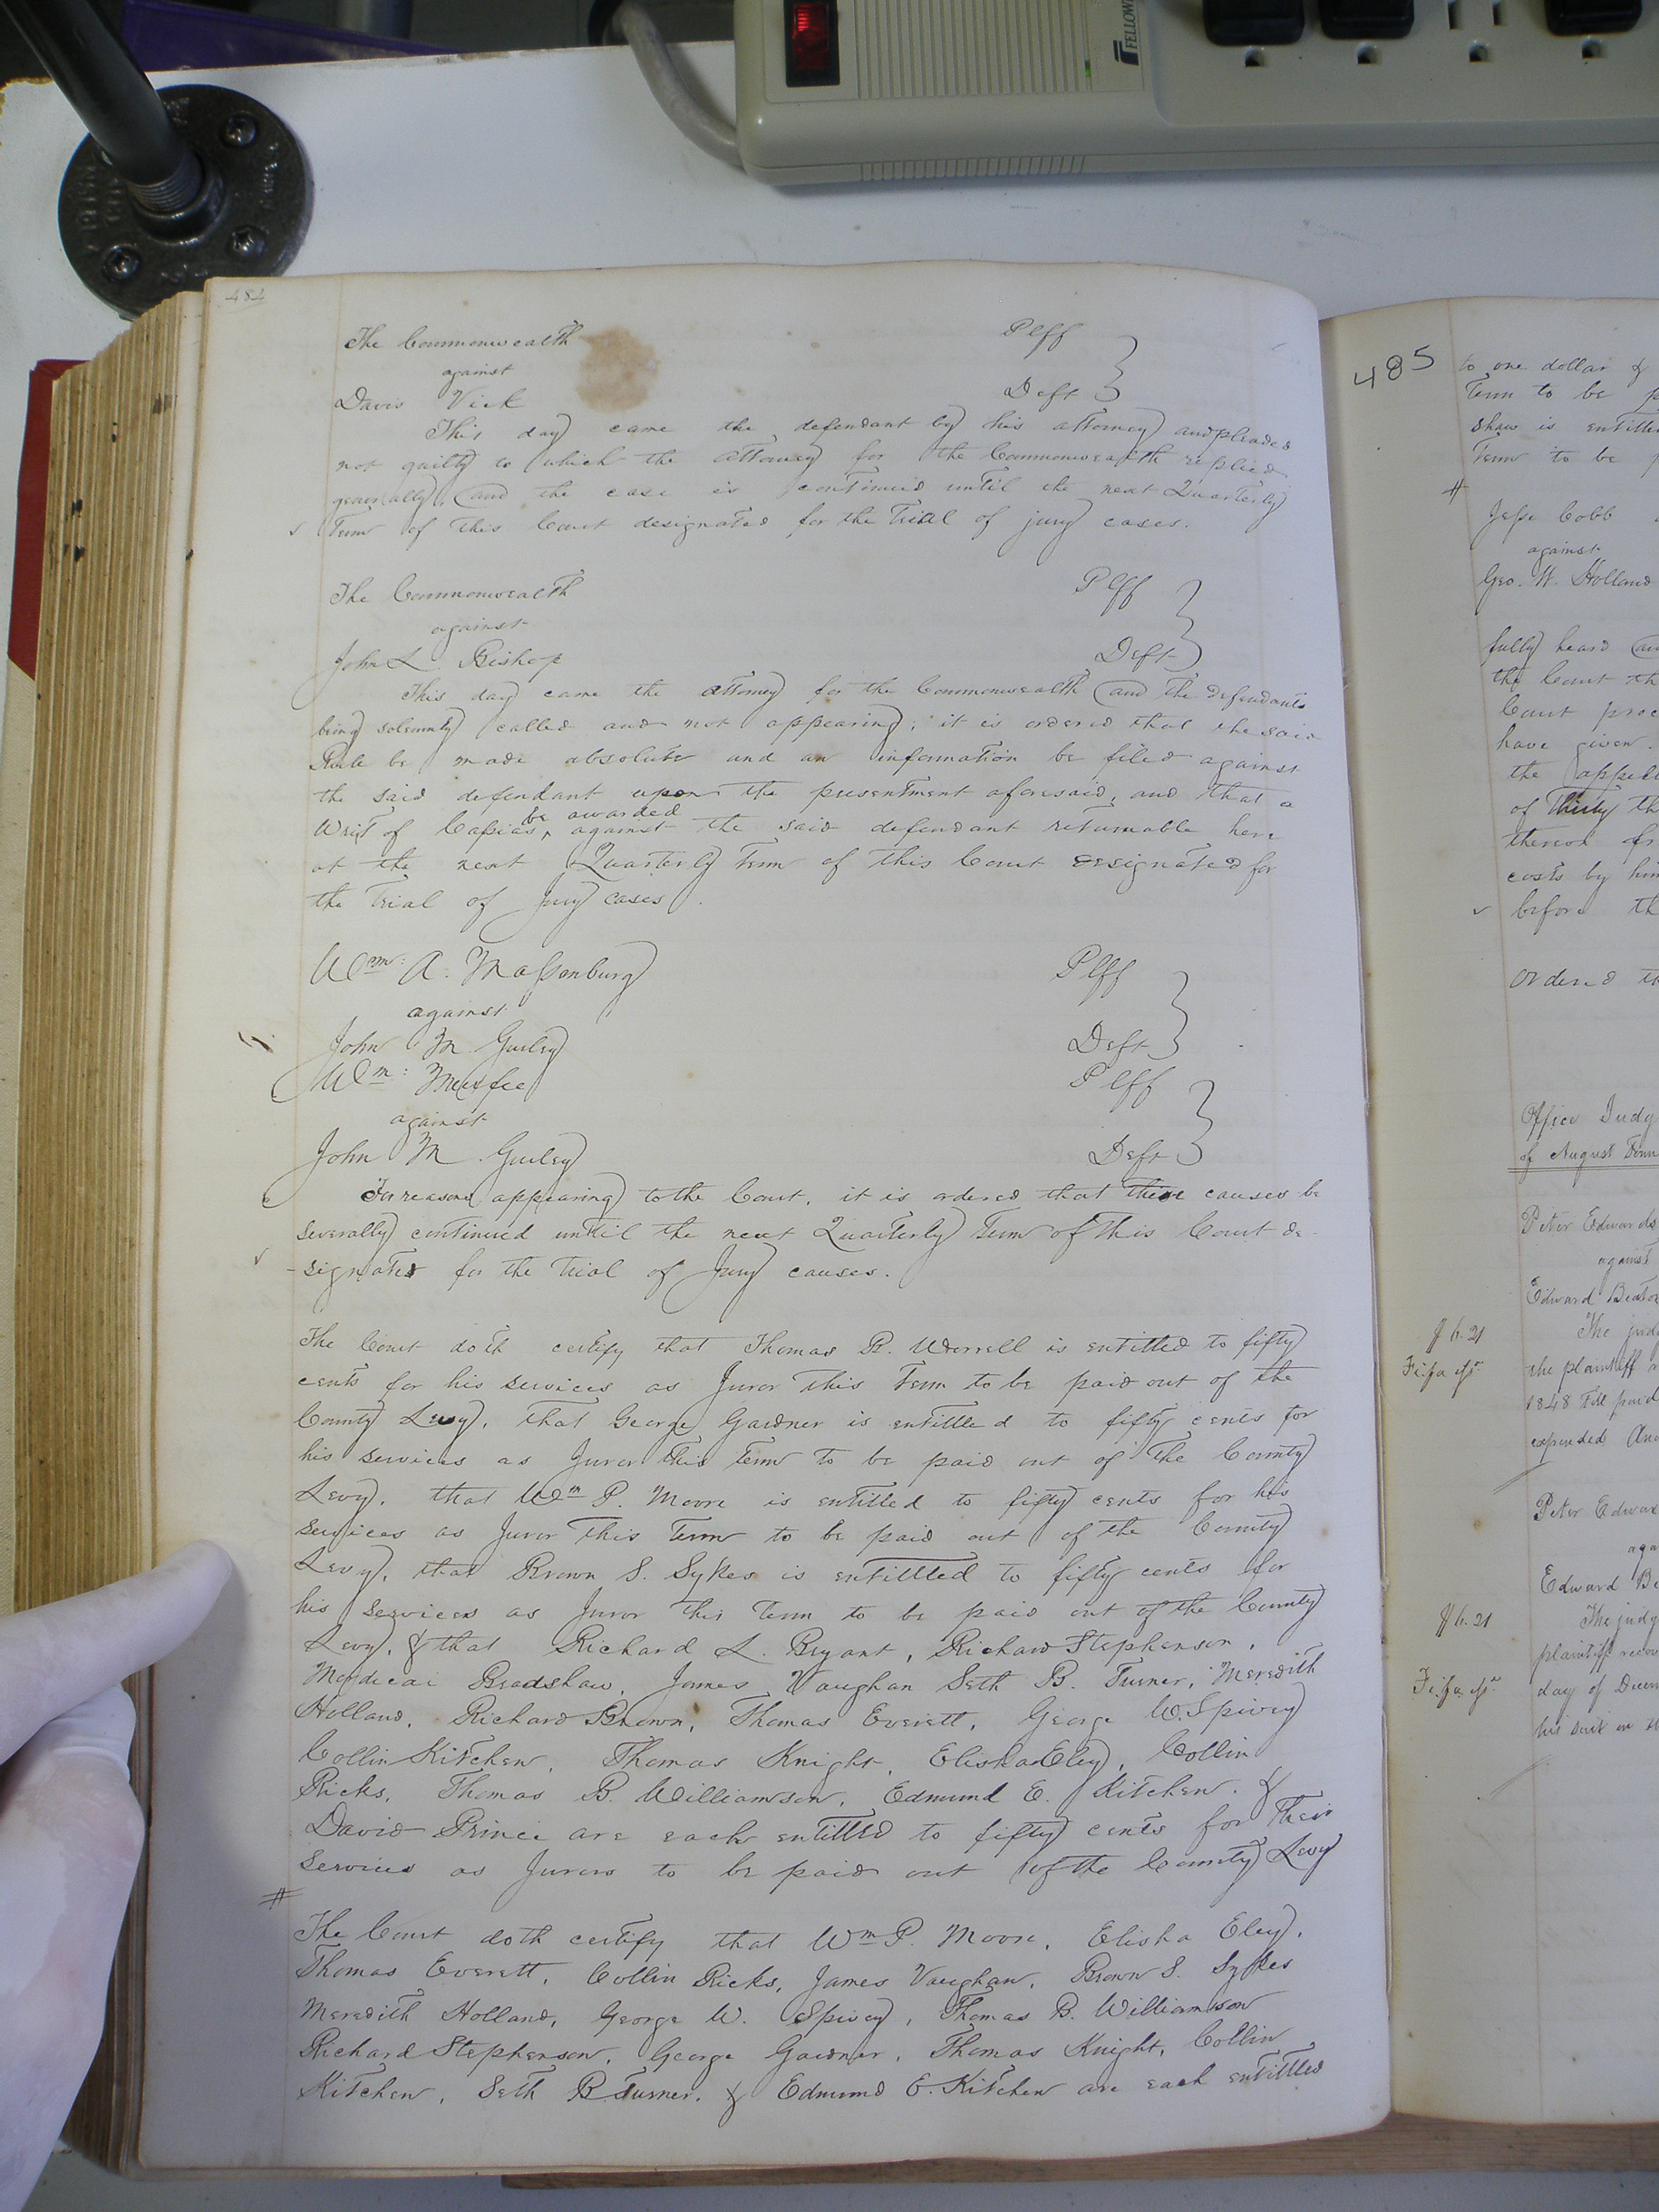 FELLOW
484
The Commonwealth Plff
against
Davis Vick Deft
This day came the defendant by his attorney and pleaded
not guilty to which the attorney for the Commonwealth replied
generally, and the case is continued until the next Quarterly
Term of this Court designated for the Trial of jury cases.
The Commonwealth Plff
against
John L. Bishop Deft
This day came the attorney for the Commonwealth and the defendants
being solemnly called and not appearing; it is ordered that the said
Rule be made absolute and an information be filed against
the said defendant upon the presentment aforesaid, and that a
be awarded
Writ of Capias, against the said defendant returnable here
at the next Quarterly Term of this Court designated for
the Trial of Jury cases.
Wm: A. Massenburg Plff
against
John M Gurley Deft
Wm: Plff
against
John M Gurley Deft
For reasons appearing to the Court, it is ordered that these causes be
severally continued until the next Quarterly Term of this Court de-
-signated for the Trial of Jury causes.
The Court doth certify that Thomas R. Worrell is entitled to fifty
cents for his services as Juror this Term to be paid out of the
County Levy, that George Gardner is entitled to fifty cents for
his services as Juror this Term to be paid out of the County
Levy, that Wm P. Moore is entitled to fifty cents for his
services as Juror this Term to be paid out of the County
Levy, that Brown S. Sykes is entittled to fifty cents for
his services as Juror this Term to be paid out of the County
Levy, & that Richard L. Bryant, Richard Stephenson,
Mordecai Bradshaw, James Vaughan Seth B. Turner, Meredith
Holland, Richard Brown, Thomas Everett, George W. Spivey
Collin Kitchen, Thomas Knight, Elisha Eley, Collin
Ricks, Thomas B. Williamson, Edmund E. Kitchen. &
David Prince are each entittled to fifty cents for their
services as Jurors to be paid out of the County Levy
#
The Court doth certify that Wm P. Moore, Elisha Eley,
Thomas Everett, Collin Ricks, James Vaughan, Brown S. Sykes
Meredith Holland, George W. Spivey, Thomas B. Williamson
Richard Stephenson, George Gardner, Thomas Knight, Collin
Kitchen, Seth B. Turner, & Edmund E. Kitchen are each entittled
485
to one dollar &
Term to be
shaw is
Term to be
#
Jesse Cobb
against
Geo. W. Holland
fully heard
the Court
Court
have given
the
of Thirty
thereof
costs by
before
Ordered
Office
of August
Peter Edwards
against
Edward
$6.21 The
Fi. fa. the plaintiff
1848 Till paid
expended And
Peter
Edward
$6.21 The
plaintiff
Fi. fa. day of
his suit in